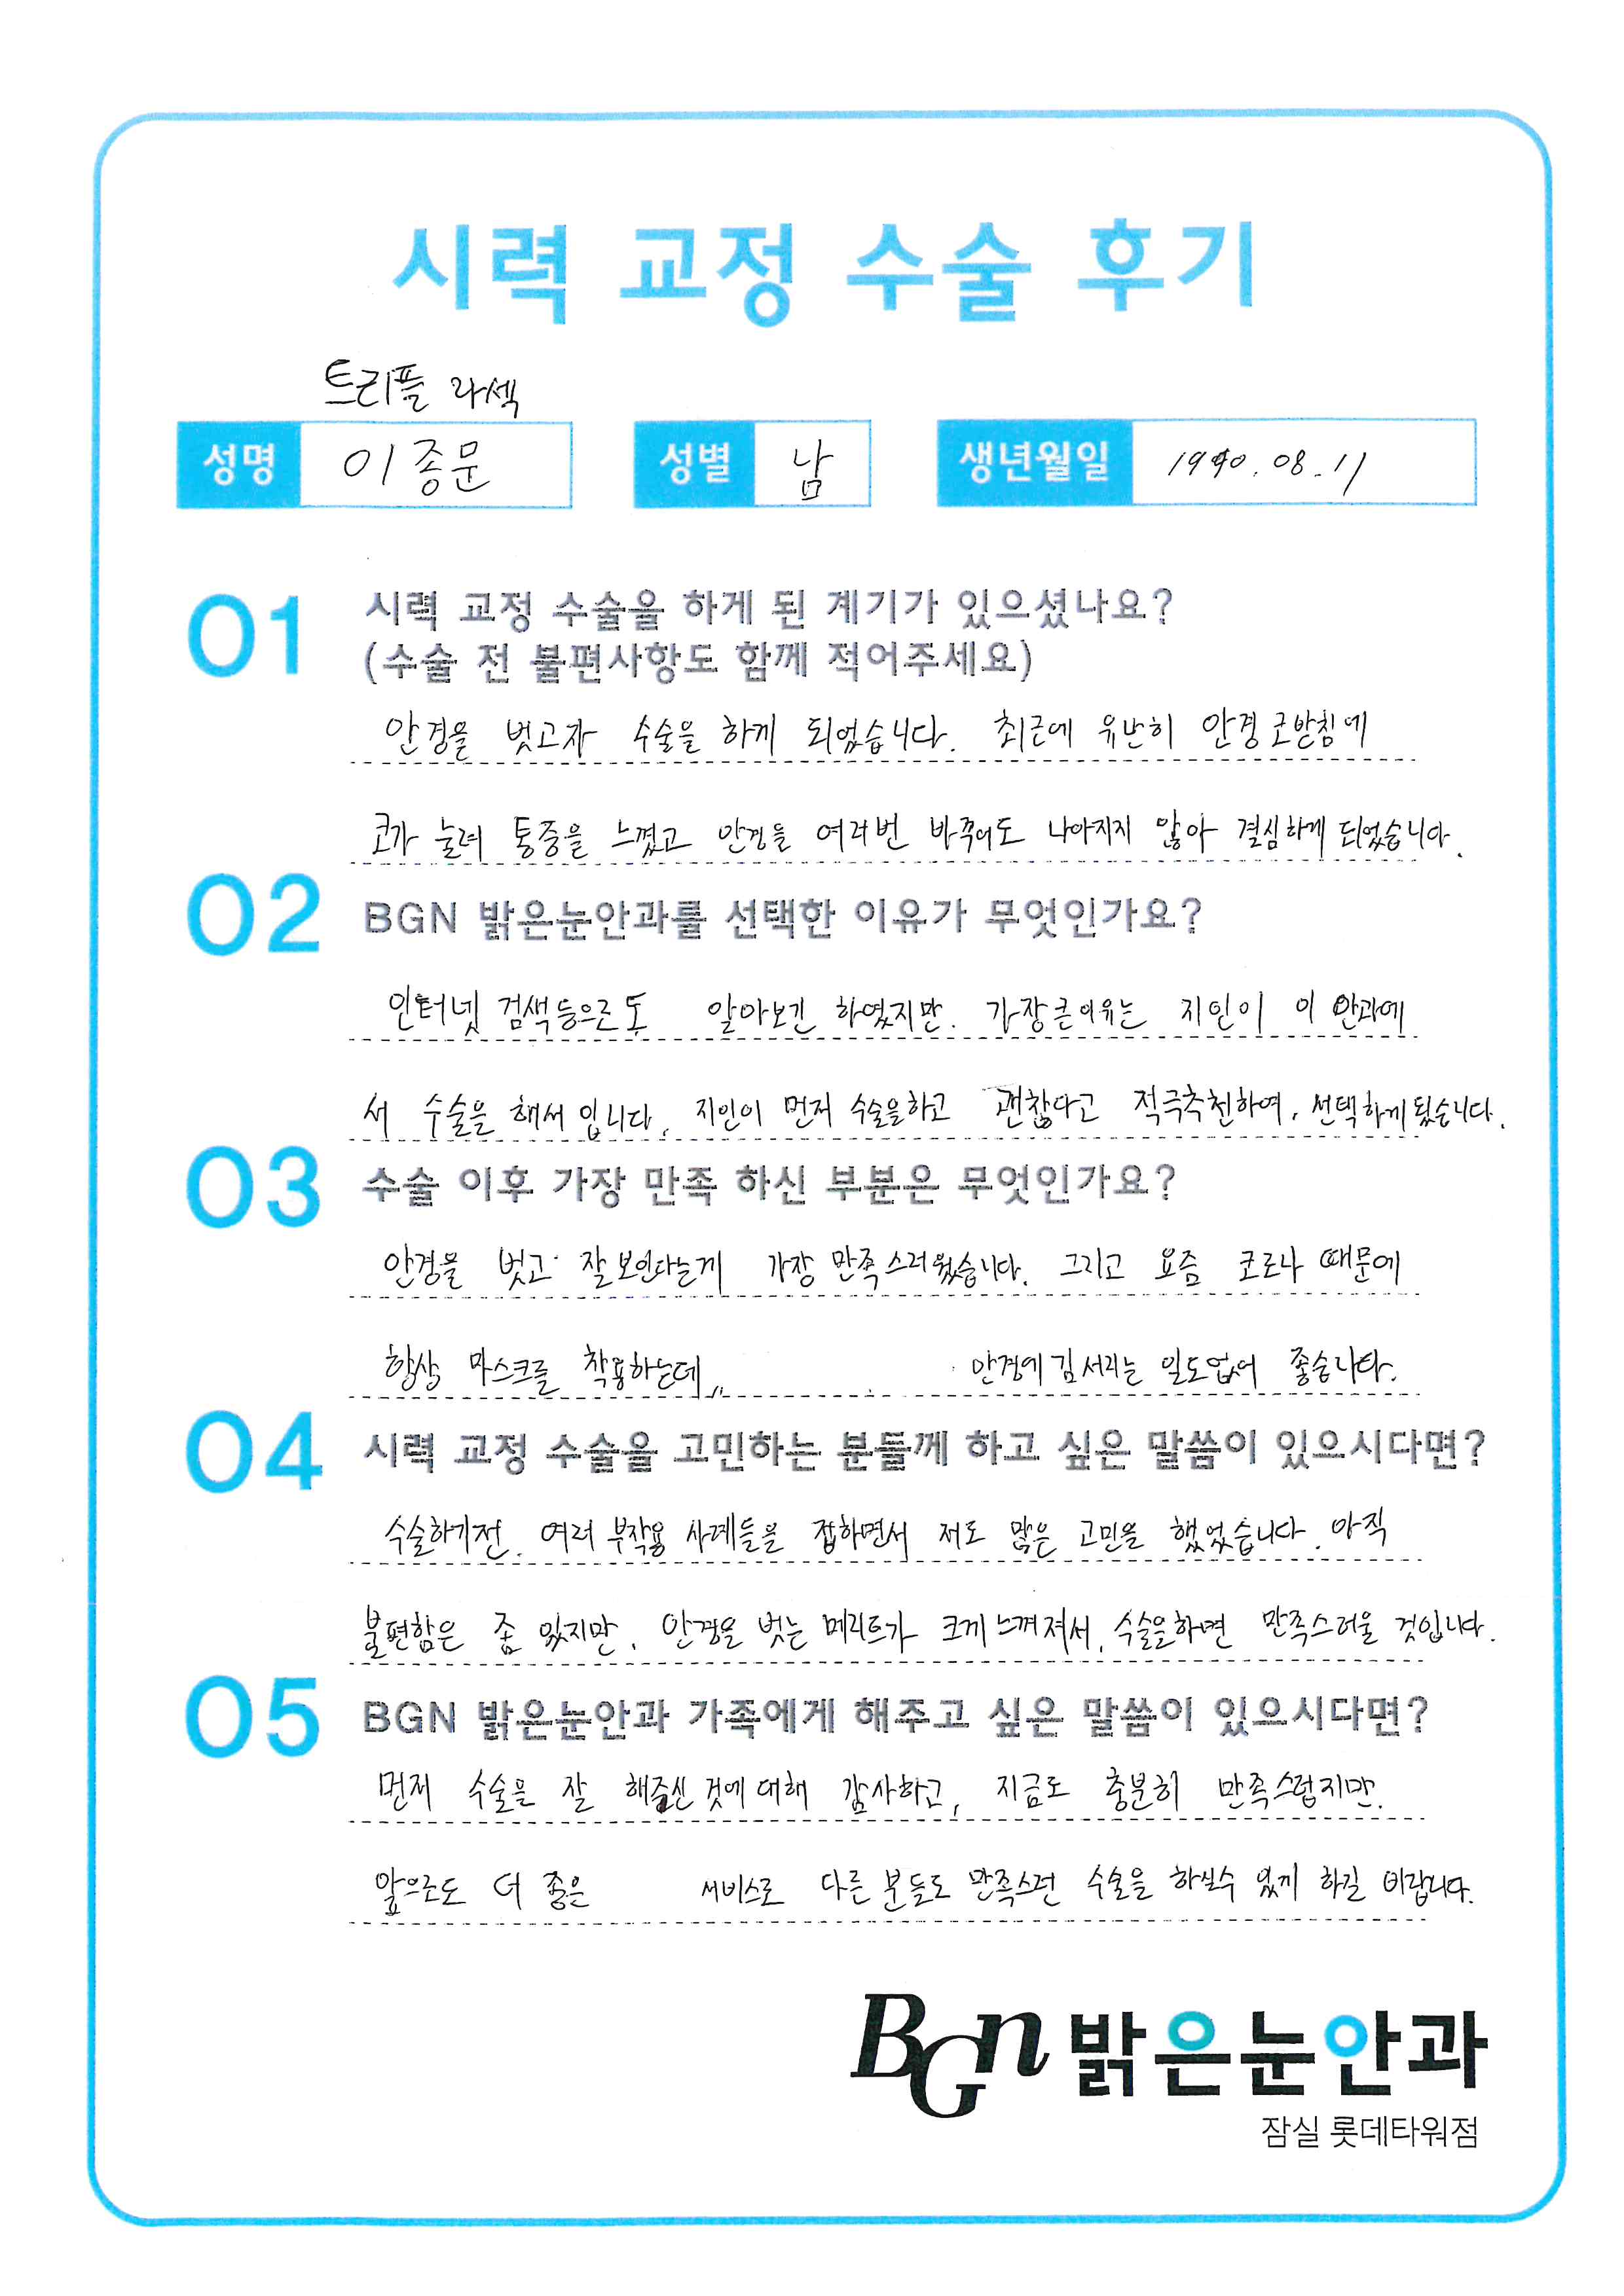 시력 교정 수술 후기
트리플 라섹
성명 이종문 성별 남 생년월일 1990.08.11
01 시력 교정 수술을 하게 된 계기가 있으셨나요?
(수술 전 불편사항도 함께 적어주세요)
안경을 벗고자 수술을 하게 되었습니다. 최근에 유난히 안경 코받침에
코가 눌려 통증을 느꼈고 안경을 여러번 바꾸어도 나아지지 않아 결심하게 되었습니다.
02 BGN 밝은눈안과를 선택한 이유가 무엇인가요?
인터넷 검색등으로도 알아보긴 하였지만. 가장큰이유는 지인이 이 안과에
서 수술을 해서 입니다. 지인이 먼저 수술을하고 괜찮다고 적극추천하여, 선택하게됬습니다.
03 수술 이후 가장 만족 하신 부분은 무엇인가요?
안경을 벗고 잘보인다는게 가장 만족스러웠습니다. 그리고 요즘 코로나 때문에
항상 마스크를 착용하는데,, 안경에김서리는 일도없어 좋습니다.
04 시력 교정 수술을 고민하는 분들께 하고 싶은 말씀이 있으시다면?
수술하기전. 여러 부작용 사례들을 접하면서 저도 많은 고민을 했었습니다. 아직
불편함은 좀 있지만, 안경을 벗는 메리트가 크게느껴져서, 수술을하면 만족스러울 것입니다.
05 BGN 밝은눈안과 가족에게 해주고 싶은 말씀이 있으시다면?
먼저 수술을 잘 해주신것에대해 감사하고, 지금도 충분히 만족스럽지만.
앞으로도 더 좋은 서비스로 다른 분들도 만족스런 수술을 하실수 있게 하길 바랍니다.
BGn 밝은눈안과
잠실 롯데타워점